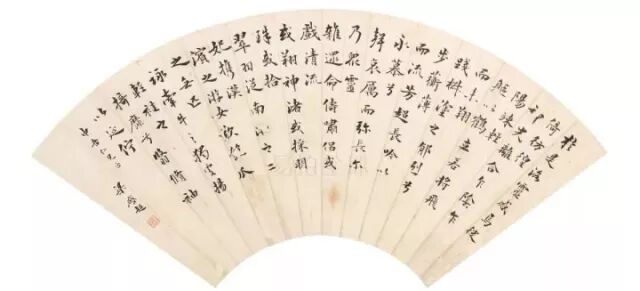 於是洛靈感焉徙
倚彷徨神光離合乍陰乍
陽竦輕軀以鶴立若將飛
而未翔踐椒塗之郁烈兮
步蘅薄而流芳超長吟以
永慕兮聲哀厲而彌長尔
乃眾靈雜遝命儔嘯侶或
戲清流或翔神渚或採明
珠或拾翠羽從南湘之二
妃攜漢濱之游女歎匏瓜
之無匹兮詠牽牛之獨處揚
輕袿之猗靡兮翳脩袖
以延佇
仁兄 梁啟超